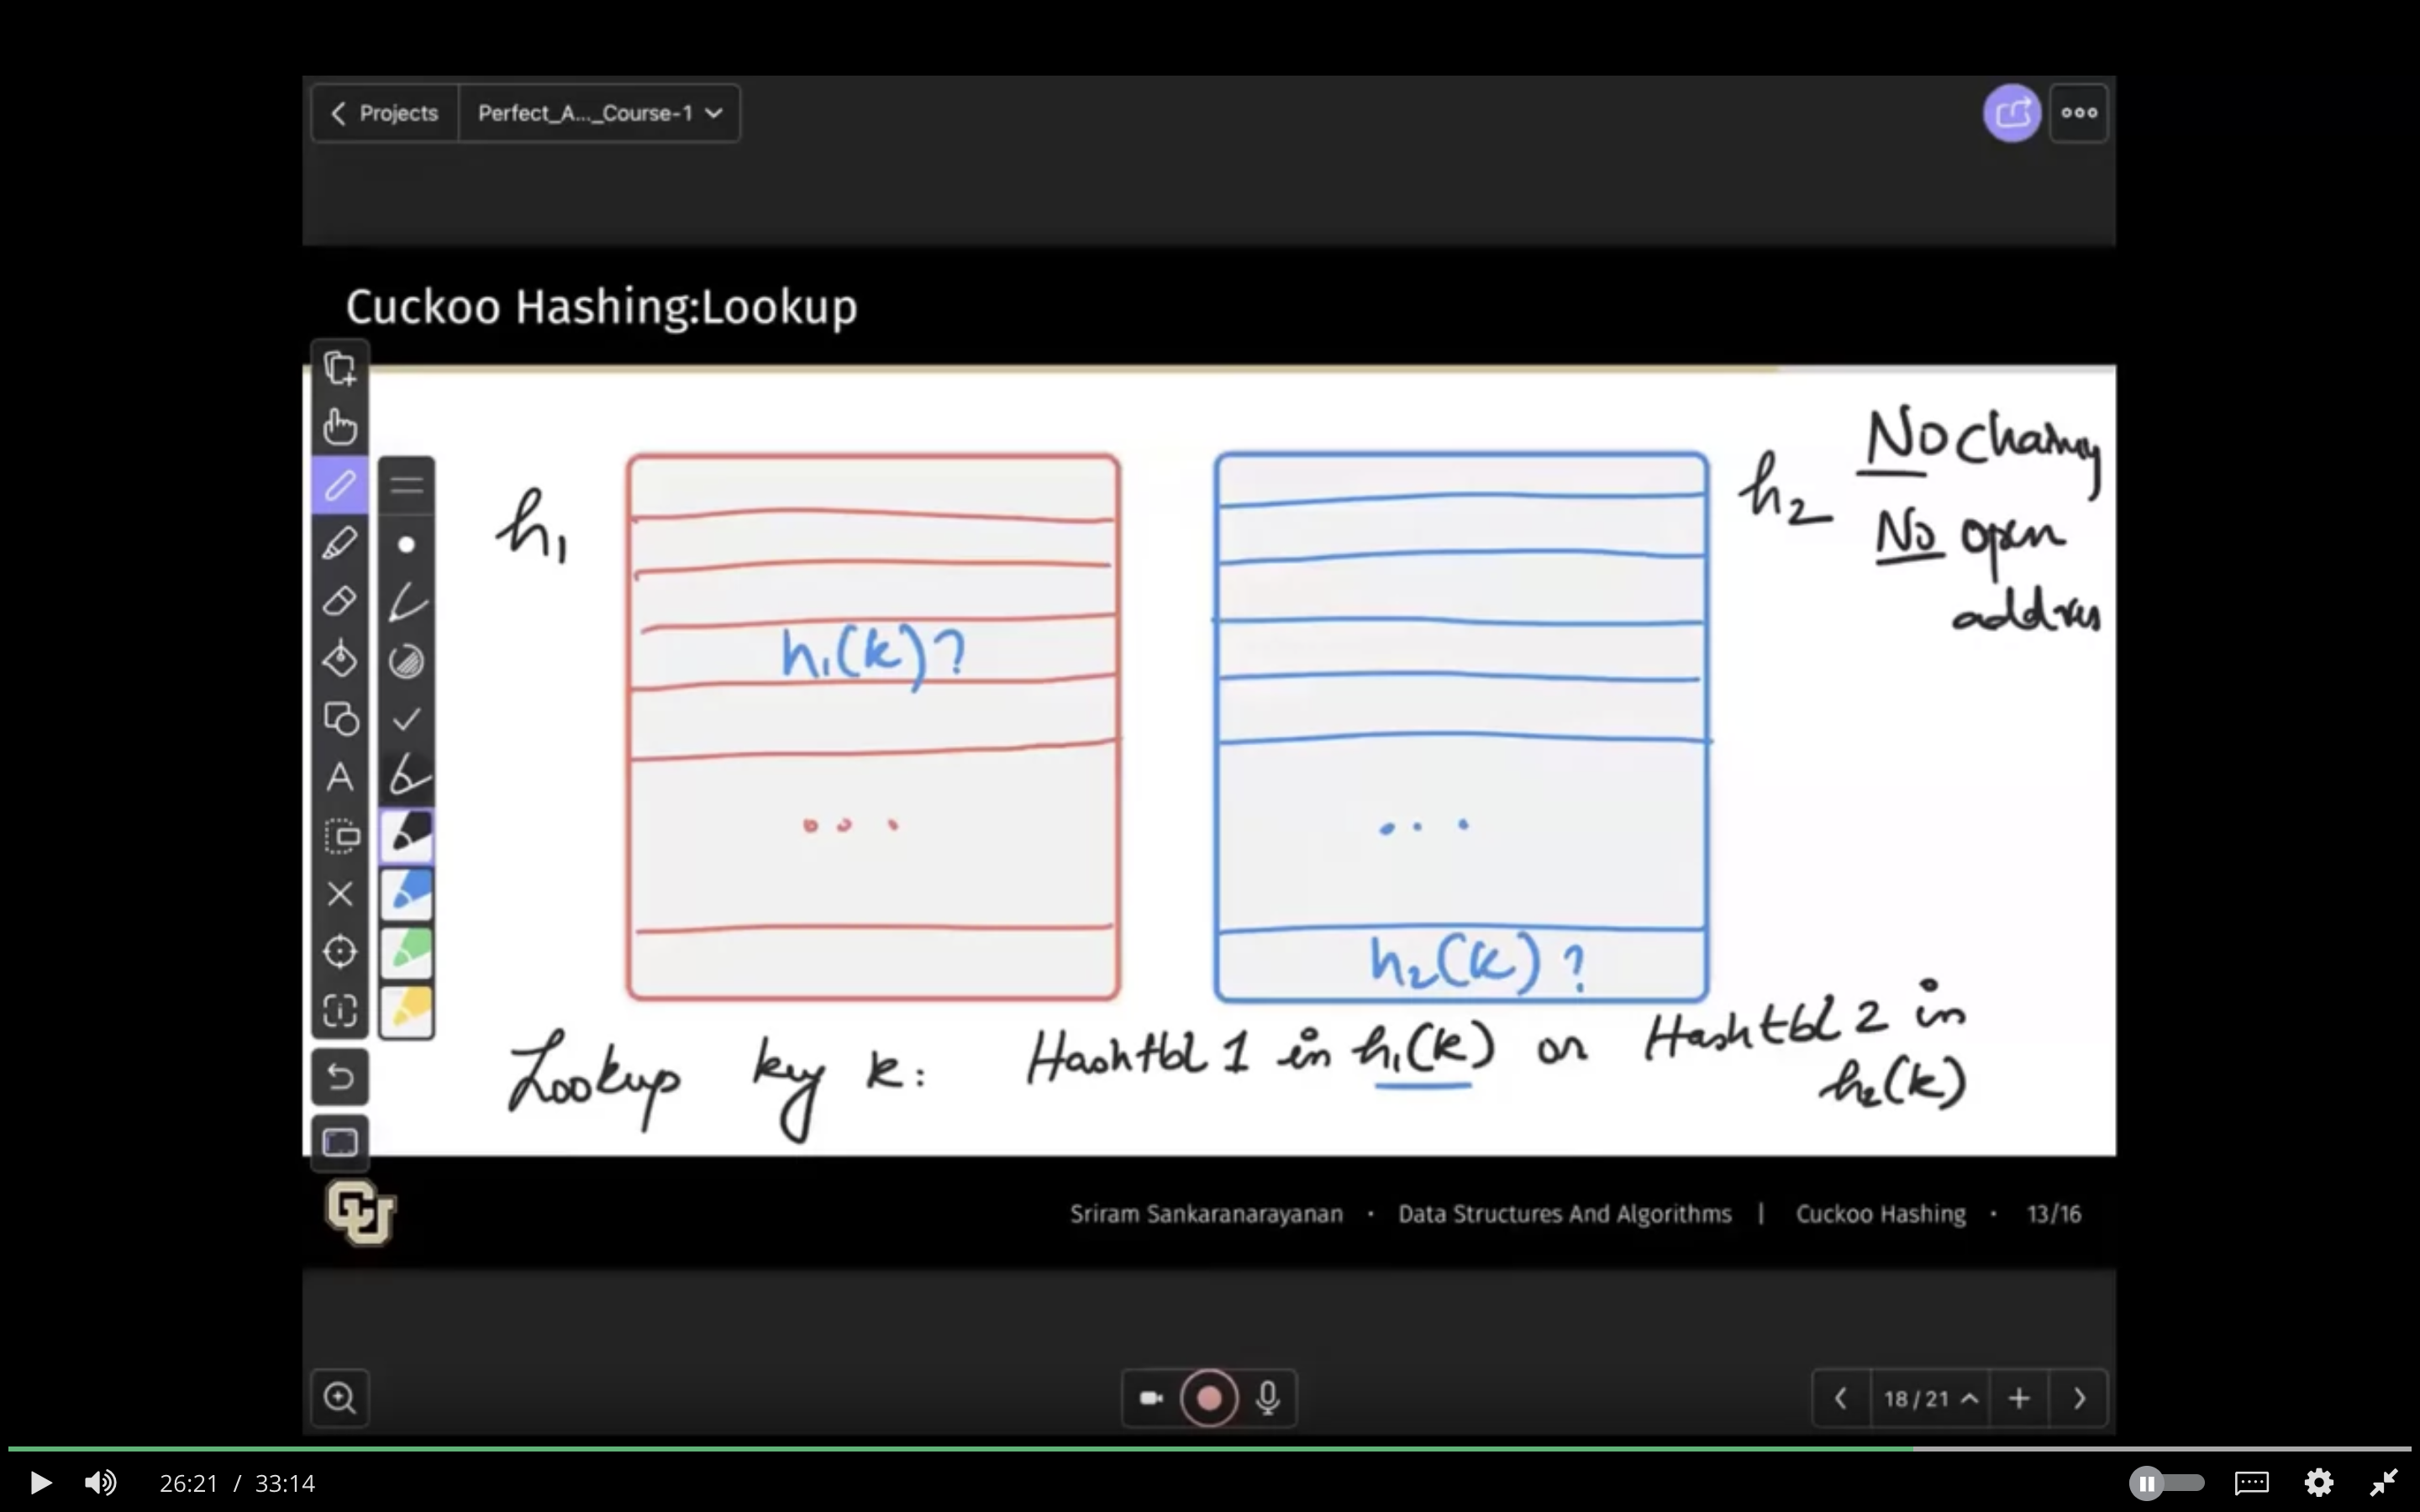 Projects Perfect_A..._Course-1
Cuckoo Hashing:Lookup
h₁
h₂
No Chaining
No open
address
h₁(k)?
h₂(k)?
Lookup key k: Hashtbl 1 in h₁(k) or Hashtbl 2 in
h₂(k)
CU
Sriram Sankaranarayanan · Data Structures And Algorithms | Cuckoo Hashing · 13/16
18/21
26:21 / 33:14